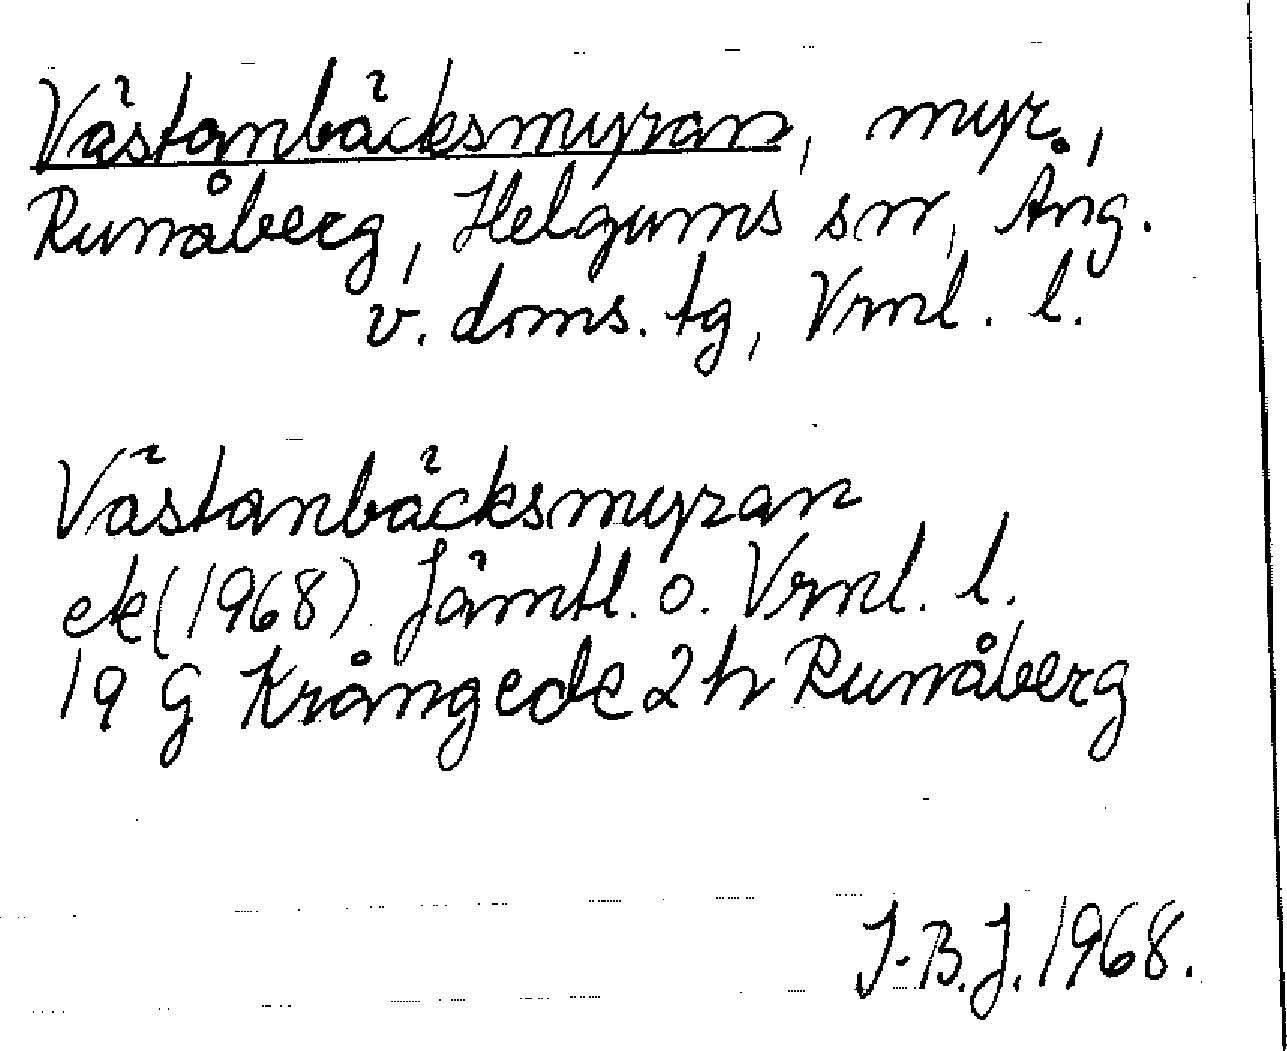 Västanbäcksmyran, myr,
Runåberg, Helgums sn, Ång.
v. doms. tg, Vrnl. l.
Västanbäcksmyran
ek (1968) Jämtl. o. Vrnl. l.
19 G Krångede 2 h Runåberg
J-B.J. 1968.